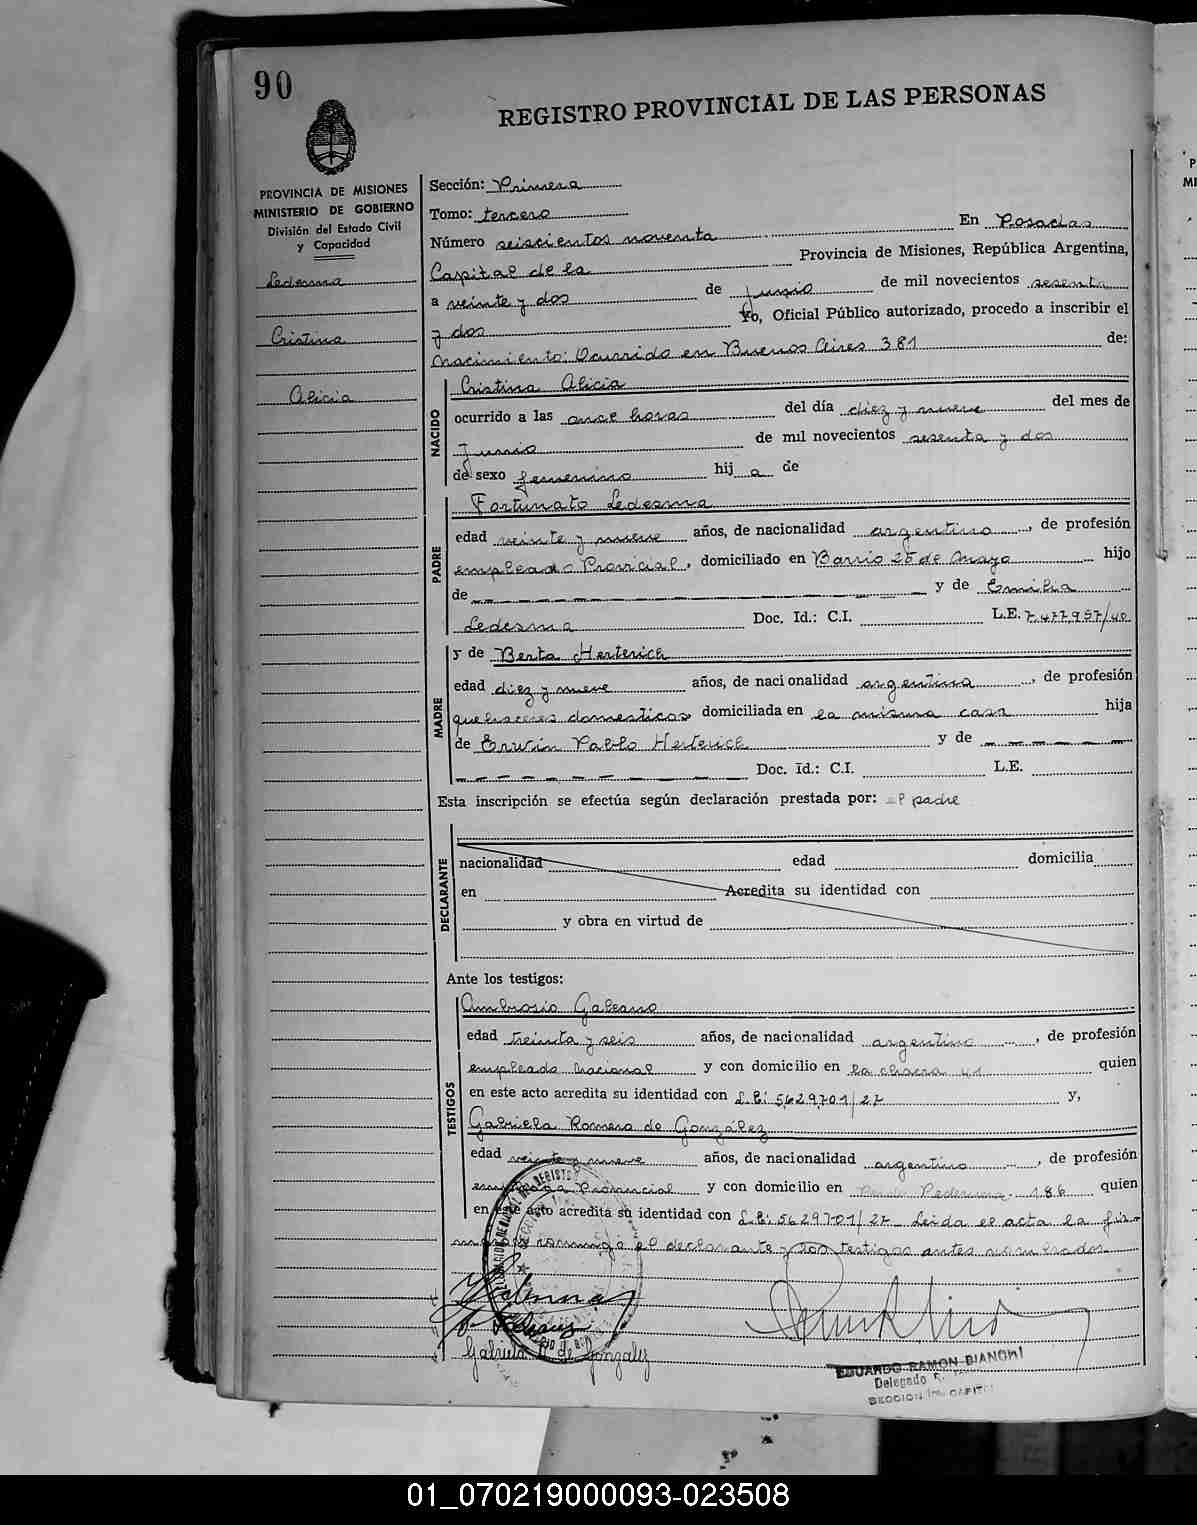 90
REGISTRO PROVINCIAL DE LAS PERSONAS
PROVINCIA DE MISIONES
MINISTERIO DE GOBIERNO
División del Estado Civil
y Capacidad
Ledesma
Cristina
Alicia
Sección: Primera
Tomo: tercero
Número seiscientos noventa En Posadas
Capital de la Provincia de Misiones, República Argentina,
a veinte y dos de junio de mil novecientos sesenta
y dos Yo, Oficial Público autorizado, procedo a inscribir el
nacimiento: Ocurrido en Buenos Aires 381 de:
NACIDO
Cristina Alicia
ocurrido a las once horas del día diez y nueve del mes de
Junio de mil novecientos sesenta y dos
de sexo femenino hij a de
PADRE
Fortunato Ledesma
edad veinte y nueve años, de nacionalidad argentino, de profesión
empleado Provincial, domiciliado en Barrio 25 de Mayo hijo
de y de Emilia
Ledesma Doc. Id.: C.I. L.E. 7.477.957/40
MADRE
y de Berta Herterich
edad diez y nueve años, de nacionalidad argentina, de profesión
quehaceres domesticos domiciliada en la misma casa hija
de Erwin Pablo Herterich y de
Doc. Id.: C.I. L.E.
Esta inscripción se efectúa según declaración prestada por: el padre
DECLARANTE
nacionalidad edad domicilia
en Acredita su identidad con
y obra en virtud de
Ante los testigos:
TESTIGOS
Ambrosio Galeano
edad treinta y seis años, de nacionalidad argentino, de profesión
empleado Nacional y con domicilio en la chacra 41 quien
en este acto acredita su identidad con L.E: 5.629.701/27 y,
Gabriela Romero de González
edad veinte y nueve años, de nacionalidad argentino, de profesión
empleada Provincial y con domicilio en 186 quien
en este acto acredita su identidad con L.E: 5629701/27 Leida el acta la fir-
man conmigo el declarante y los testigos antes nombrados
Gabriela R de Gonzalez
EDUARDO RAMON BIANCHI
Delegado
SECCION CAPITAL
01_070219000093-023508